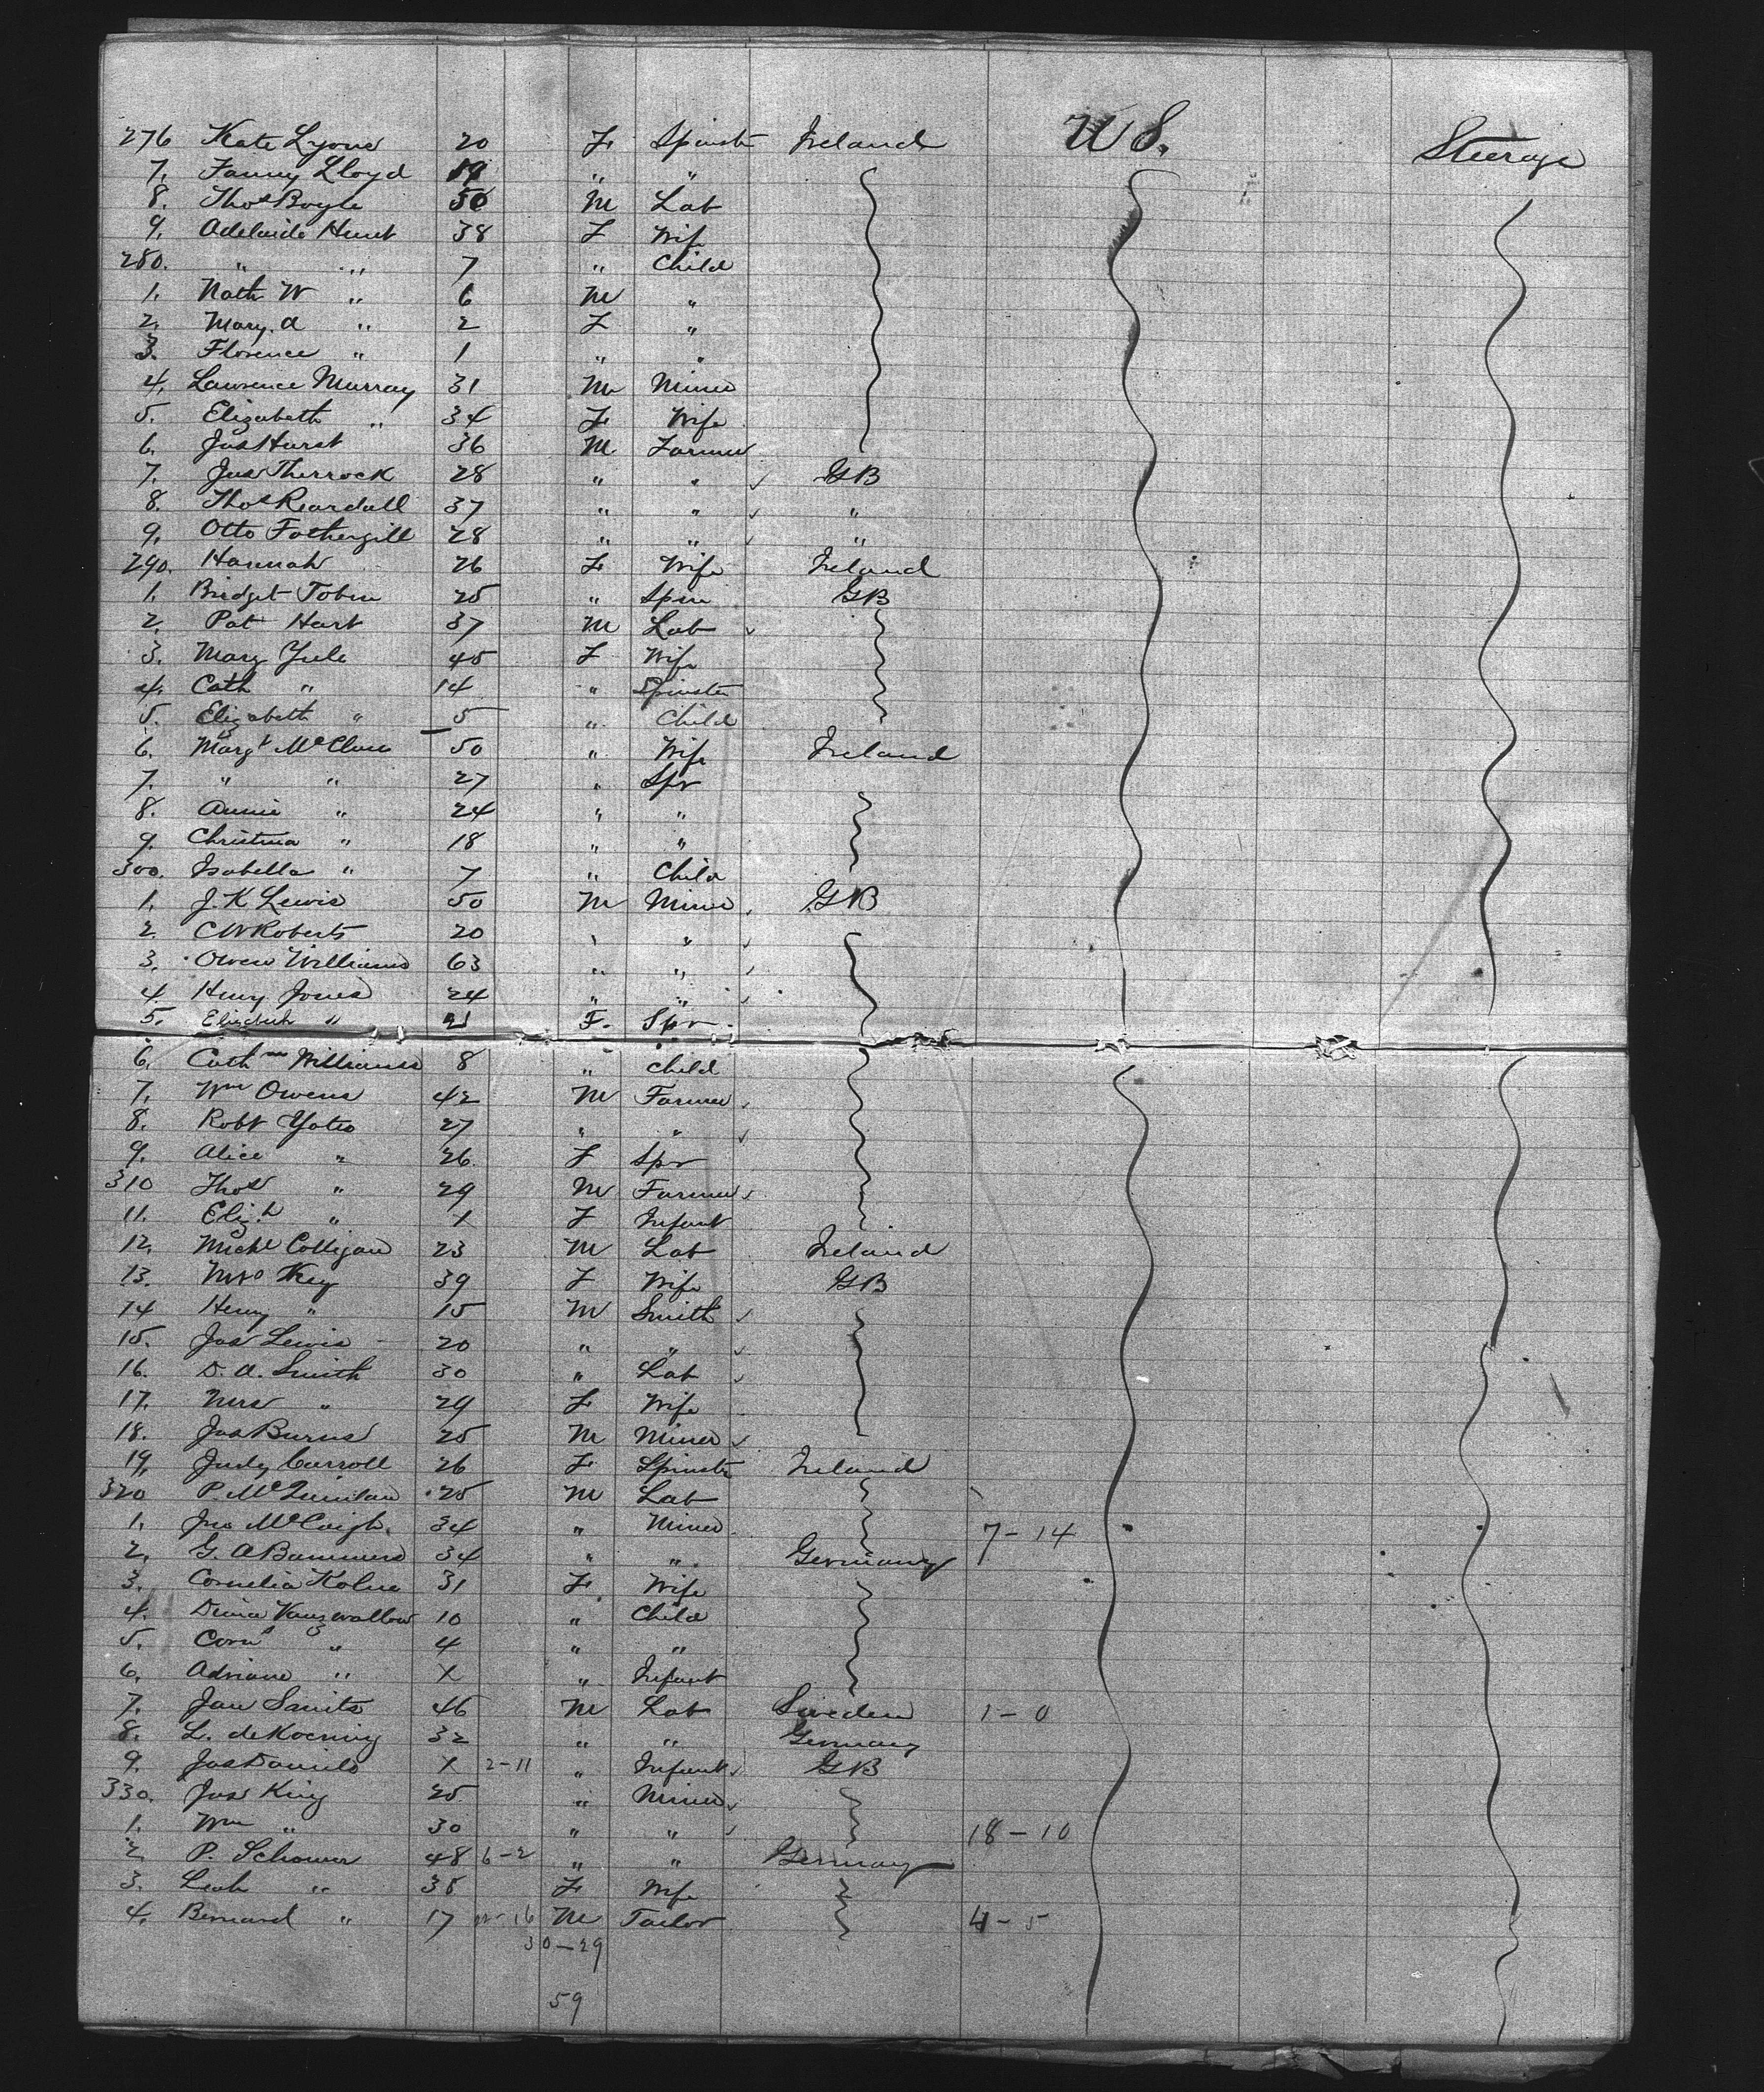 276 Kate Lyons 20 F. Spinster Ireland U S. Steerage
7. Fanny Lloyd 19 " "
8. Thos Boyle 50 M Lab
9. Adelaide Hunt 38 F Wife
280. " " 7 " Child
1. Nath W " 6 M "
2. Mary. A " 2 F "
3. Florence " 1 " "
4. Lawrence Murray 31 M Miner
5. Elizabeth " 34 F Wife
6. Jas Hurst 36 M Farmer
7. Jas Therrock 28 " " GB
8. Thos Reardall 37 " " "
9. Otto Fothergill 28 " " "
290. Hannah 26 F Wife Ireland
1. Bridget Tobin 25 " Spin GB
2. Pat Hart 37 M Lab
3. Mary Yule 45 F Wife
4. Cath " 14 " Spinster
5. Elizabeth " 5 " Child
6. Margt McClure 50 " Wife Ireland
7. " " 27 " Spr
8. Annie " 24 " "
9. Christina " 18 " "
300. Isabella " 7 " Child
1. J. K Lewis 50 M Miner GB
2. C W Roberts 20 " "
3. Owen Williams 63 " "
4. Henry Jones 24 " "
5. Elizabeth " 21 F. Spr
6. Cathne Williams 8 " Child
7. Wm Owens 42 M Farmer
8. Robt Yates 27 " "
9. Alice " 26 F Spr
310 Thos " 29 M Farmer
11. Elizh " 1 F Infant
12. Michl Colligan 23 M Lab Ireland
13. Mrs Key 39 F Wife GB
14 Henry " 15 M Smith
15. Jas Lewis 20 " "
16. D. A. Smith 30 " Lab
17. Mrs " 29 F Wife
18. Jas Burns 25 M Miner
19. Judy Carroll 26 F Spinster Ireland
320 P. McQuinlan 25 M Lab
1. Jno McCaigh. 34 " Miner 7-14
2. G. A Bammers 34 " " Germany
3. Cornelia Kolne 31 F Wife
4. Dina Vanzwallow 10 " Child
5. Corn " 4 " "
6. Adriana " X " Infant
7. Jan Smits 46 M Lab Sweden 1-0
8. L. deKoening 32 " " Germany
9. Jas Daniels X 2-11 " Infant GB
330. Jas King 25 " Miner
1. Wm " 30 " " 18-10
2 P. Schower 48 6-2 " " Germany
3. Leah " 38 F Wife
4. Bernard " 17 16 M Tailor 4-5
30-29
59